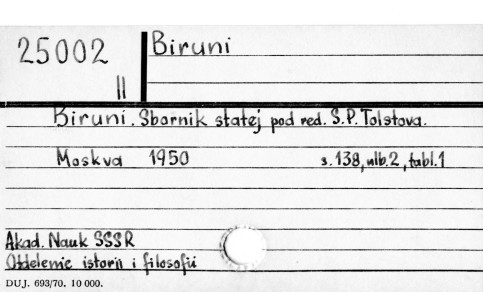 25002
II
Biruni
Biruni. Sbornik statej pod red. S.P. Tolstova.
Moskva 1950 s. 138, nlb. 2, tabl. 1
Akad. Nauk SSSR
Otdelenie istorii i filosofii
DUJ. 693/70. 10 000.